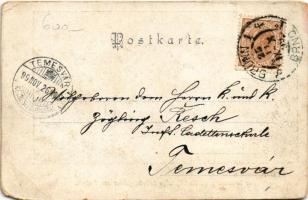 600.-
Postkarte.
TEMESVÁR
Hochgeboren dem Herrn k. u. k.
Zögling Resch
Inft. Cadettenschule
Temesvár